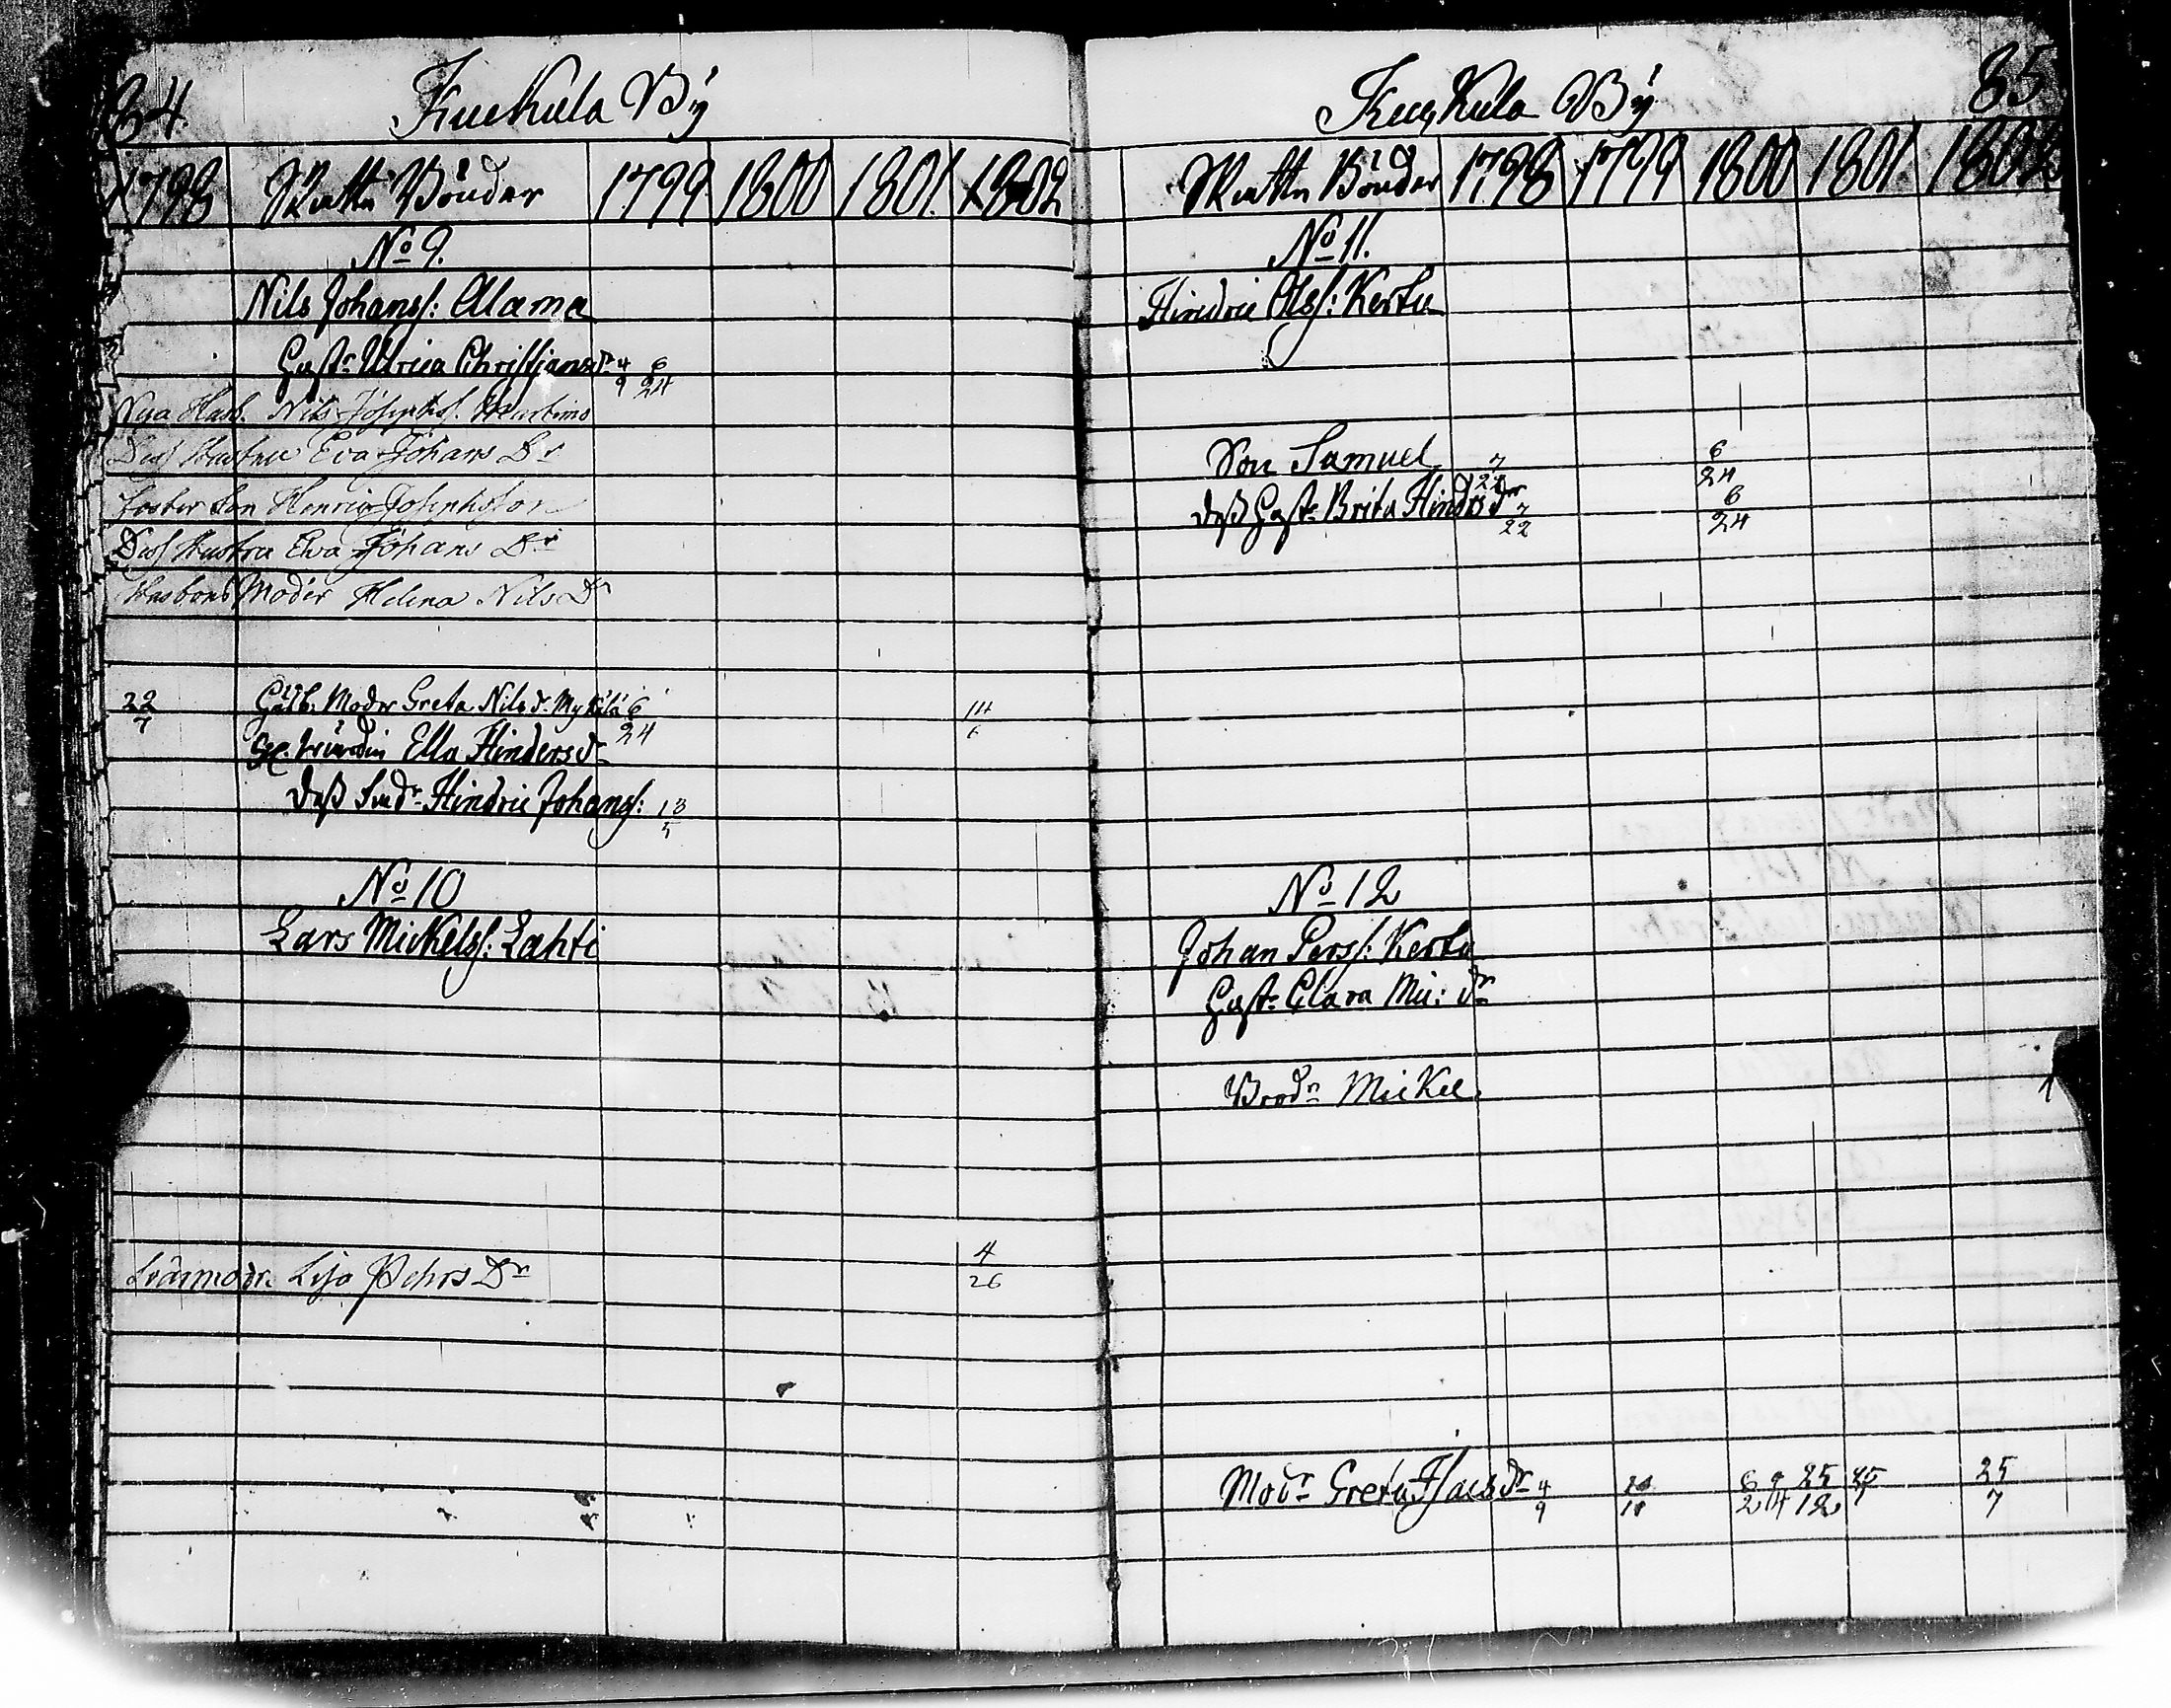 84.
Kuckula By
1798 Skatte Bönder 1799 1800 1801 1802
No 9.
Nils Johanss: Alama
Hust: Ulrica Christjansdr 4/9 6/24
Nya Husb. Nils
Dess Hustru Eva Johans Dr
Foster Son Henric
Dess Hustru Eva Johans Dr
Husbond Moder Helena Nils Dr
22/7 Moder Greta Nilsdr 6/24 14/6
Ella Hindersdr
Dess Hindric Johanss: 13/5
No 10
Lars Mickelss: Lahti
Svärmodr. Lisa Pehrs Dr 4/26
85
Kuckula By
Skatte Bönder 1798 1799 1800 1801 1802
No 11.
Hindric Olss: Kertu
Son Samuel 7/22 6/24
Dess Hust: Brita Hindrsdr 7/22 6/24
No 12
Johan Perss: Kertu
Hust: Clara Mic: dr
Brodr Mickel
Modr Greta Isacsdr 4/9 6/24 25/12 25/7